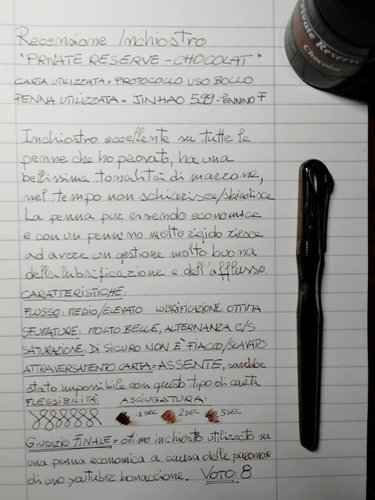 Recensione Inchiostro
"PRIVATE RESERVE - CHOCOLAT"
CARTA UTILIZZATA = PROTOCOLLO USO BOLLO
PENNA UTILIZZATA = JINHAO 599 - PENNINO F
Private Reserve
Chocolat
Inchiostro eccellente su tutte le
penne che ho provato, ha una
bellissima tonalità di marrone,
nel tempo non schiarisce/sbiadisce
La penna pur essendo economica
e con pennino molto rigido riesce
ad avere un gestione molto buona
della lubrificazione e dell'afflusso
CARATTERISTICHE:
FLUSSO: MEDIO/ELEVATO LUBRIFICAZIONE OTTIMA
SFUMATURE: MOLTO BELLE, ALTERNANZA C/S
SATURAZIONE: DI SICURO NON È FIACCO/SLAVATO
ATTRAVERSAMENTO CARTA = ASSENTE, sarebbe
stato impossibile con questo tipo di carta
FLESSIBILITÀ: ASCIUGATURA:
1 sec 2 sec 5 sec
GIUDIZIO FINALE = ottimo inchiostro utilizzato su
una penna economica a causa delle
di uno youtuber bonaccione. VOTO: 8